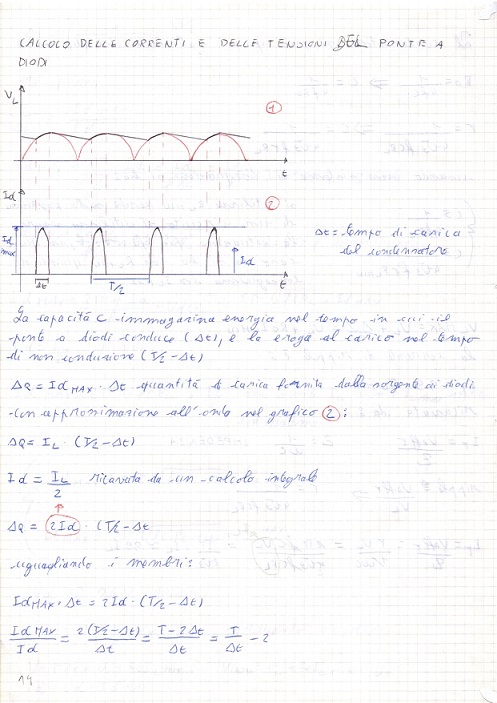 CALCOLO DELLE CORRENTI E DELLE TENSIONI DEL PONTE A
DIODI
VL
1
t
Id
2
Id
max
Δt = tempo di carica
del condensatore
Id
Δt
T/2
t
La capacità C immagazina energia nel tempo in cui il
ponte a diodi conduce (Δt), e la eroga al carico nel tempo
di non conduzione (T/2-Δt)
ΔQ = Id MAX · Δt quantità di carica fornita dalla sorgente ai diodi
con approssimazione all'onda nel grafico 2 :
ΔQ = IL · (T/2-Δt)
Id = IL/2 ricavata da un calcolo integrale
ΔQ = 2Id · (T/2-Δt
uguagliando i membri:
Id MAX · Δt = 2Id · (T/2-Δt)
Id MAX/Id = 2(T/2-Δt)/Δt = T-2Δt/Δt = T/Δt - 2
14